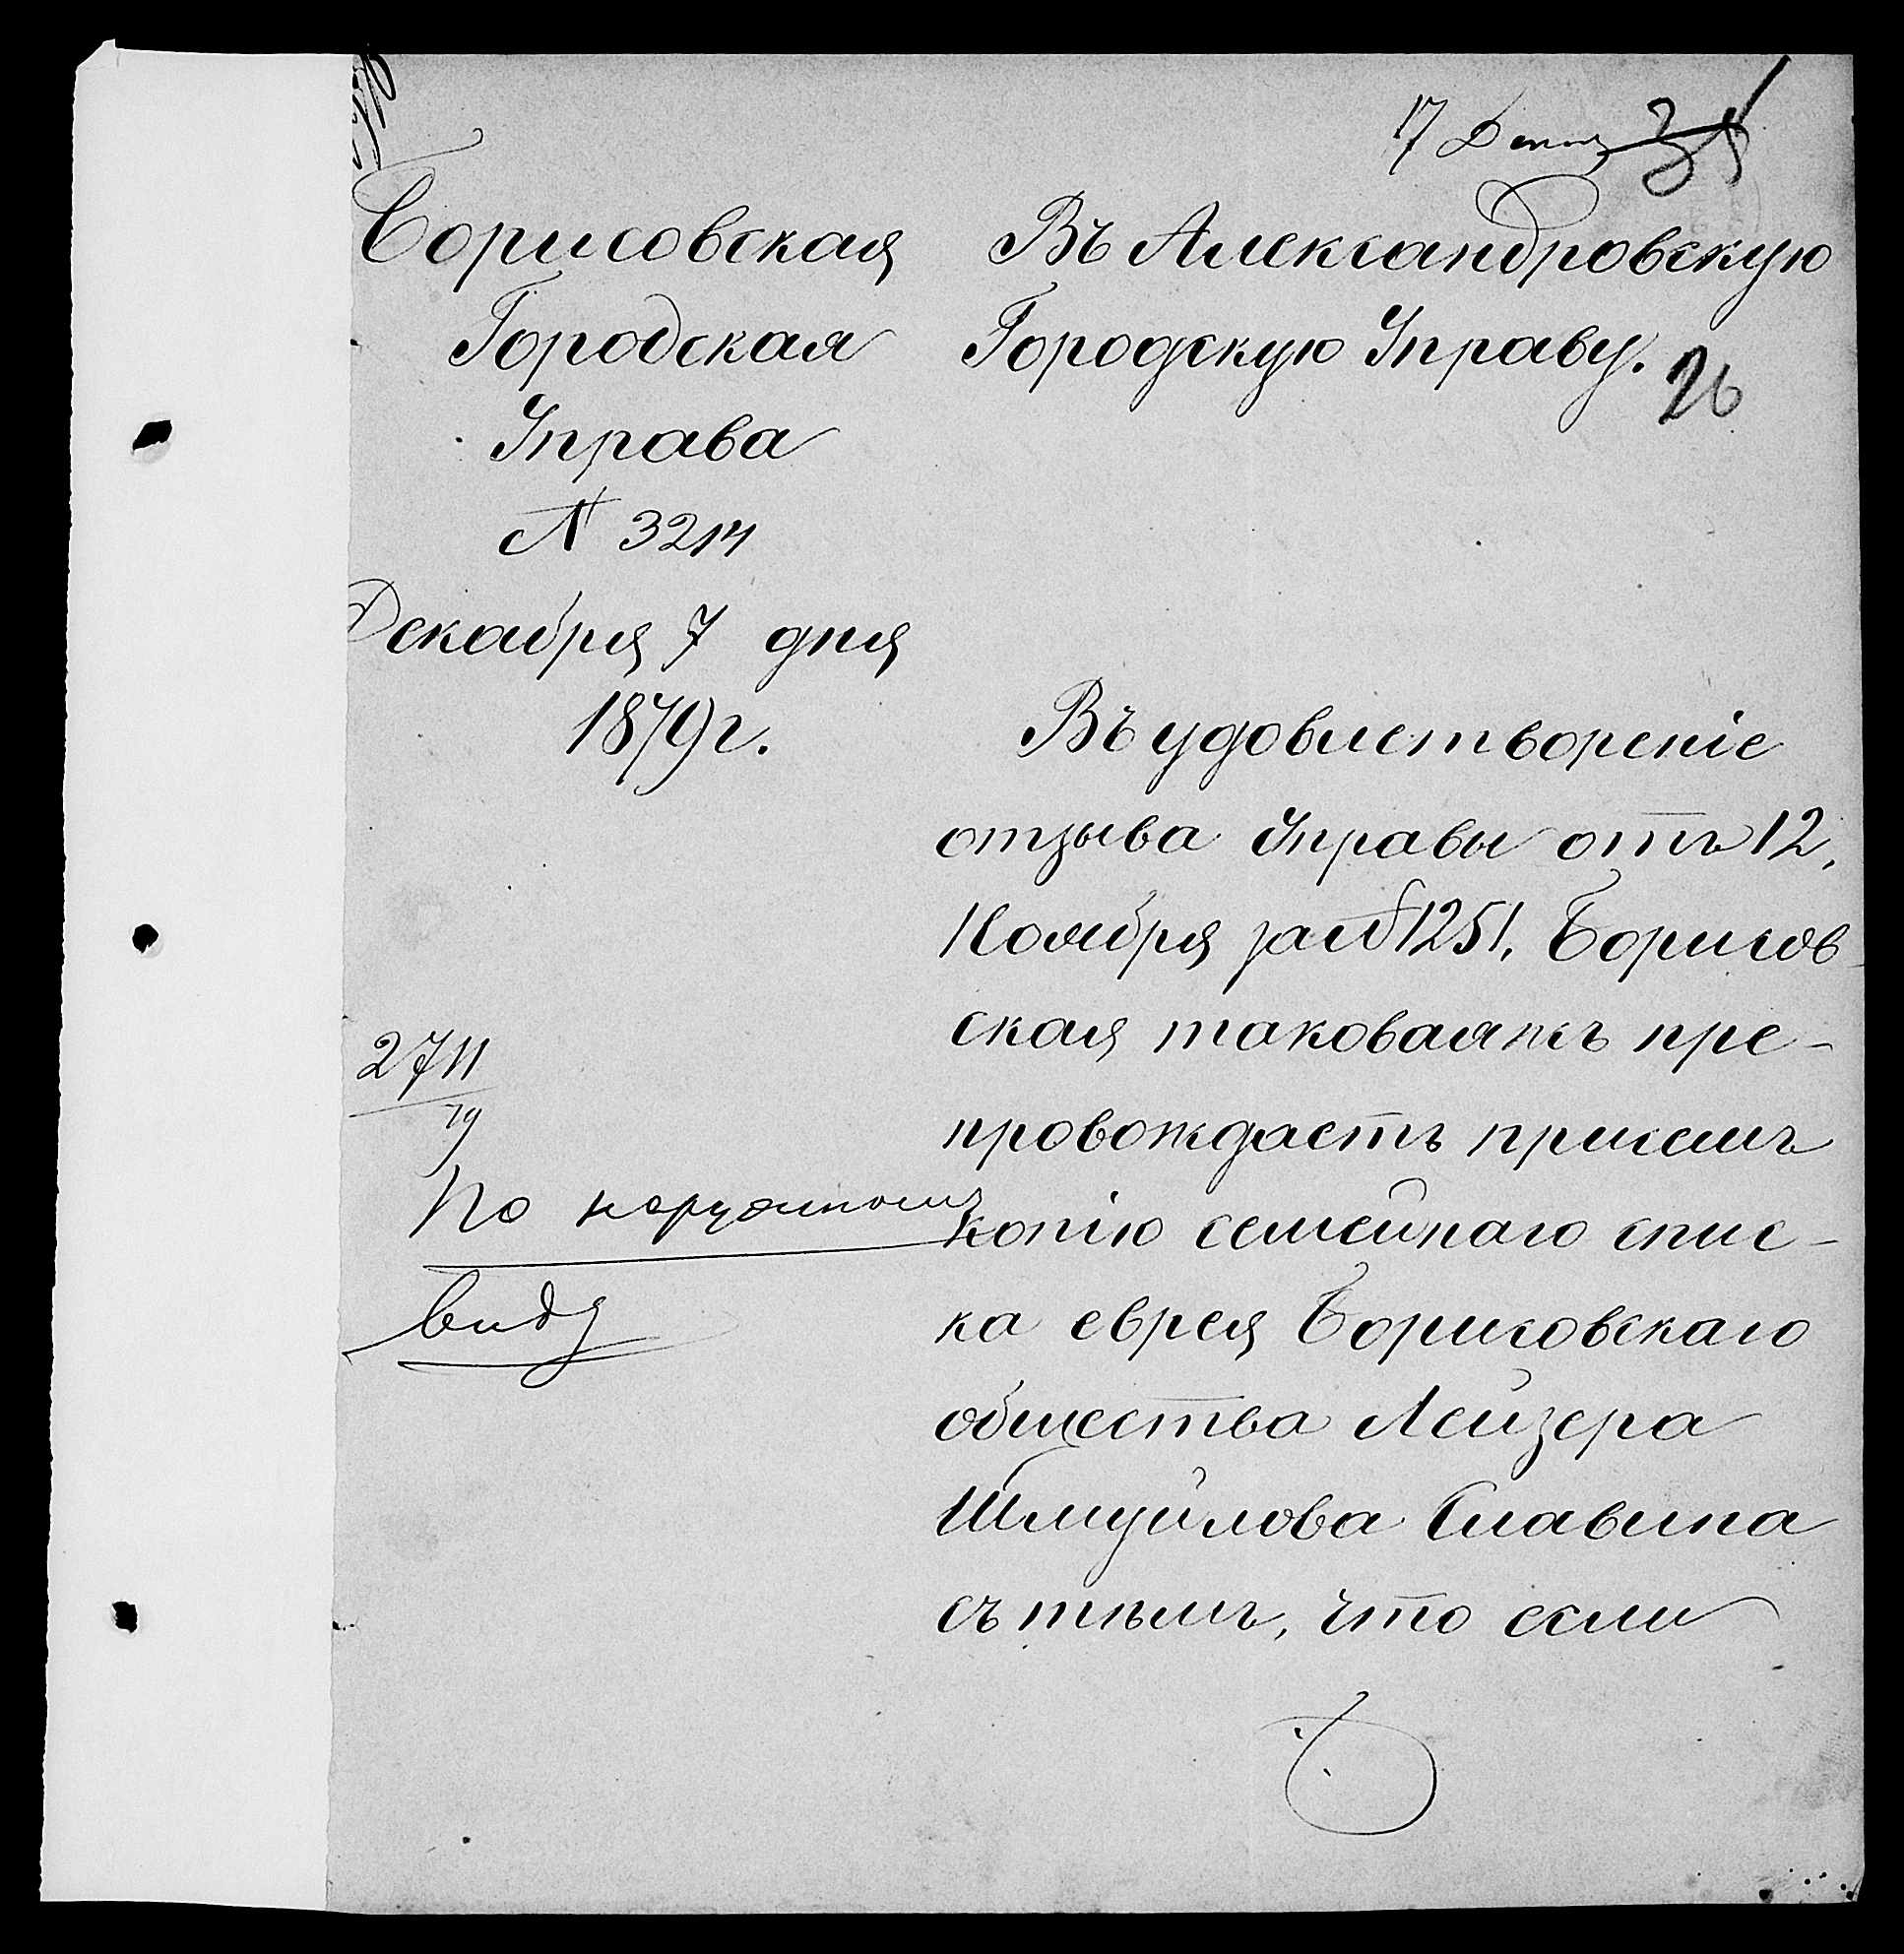 17 Декаб
Борисовская
Городская
Управа
№ 3214
Декабря 7 дня
1879 г.
2711
79
По наружному
виду
Въ Александровскую
Городскую Управу.
26
Въ удовлетвореніе
отзыва Управы отъ 12,
Ноября за № 1251, Борисов-
ская таковаяжъ пре-
провождаетъ присемъ
копію семейнаго спис-
ка еврея Борисовскаго
общества Лейзера
Шмуйлова Славина
съ тѣмъ, что если